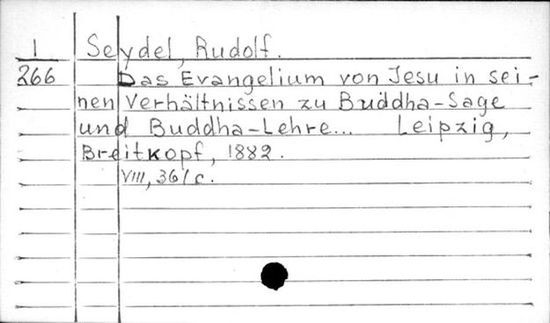 I Seydel, Rudolf.
266 Das Evangelium von Jesu in sei-
nen Verhältnissen zu Buddha-Sage
und Buddha-Lehre... Leipzig,
Breitkopf, 1882.
VIII, 361 c.